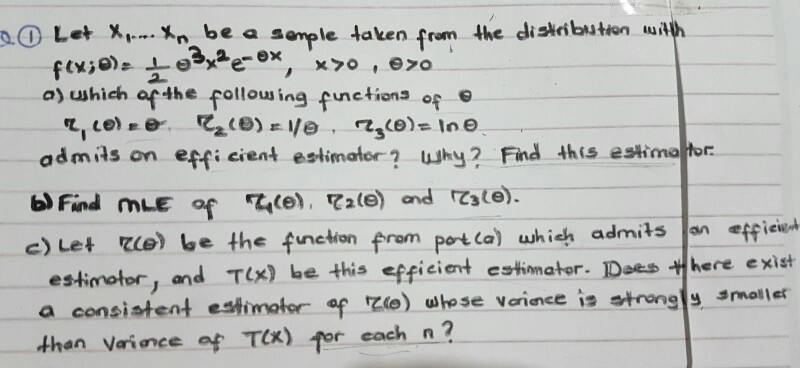 Q.① Let X₁,... Xₙ be a sample taken from the distribution with
f(x;θ) = 1/2 θ³x²e^-θx, x>0, θ>0
a) which of the following functions of θ
τ₁(θ) = θ, τ₂(θ) = 1/θ, τ₃(θ) = ln θ
admits an efficient estimator? Why? Find this estimator.
b) Find MLE of τ₁(θ), τ₂(θ) and τ₃(θ).
c) Let τ(θ) be the function from part (a) which admits an efficient
estimator, and T(X) be this efficient estimator. Does there exist
a consistent estimator of τ(θ) whose variance is strongly smaller
than variance of T(X) for each n?